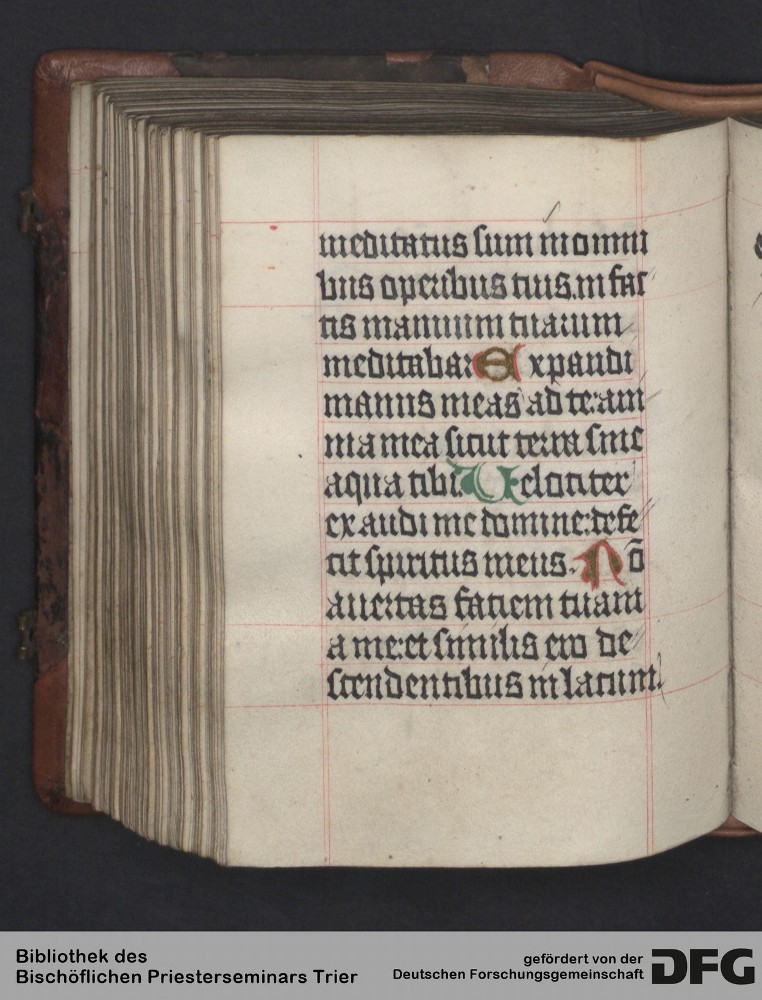 meditatus sum in omni
bus operibus tuis.in fac
tis manuum tuarum
meditabar Expandi
manus meas ad te:ani
ma mea sicut terra sine
aqua tibi. Velociter
exaudi me domine:defe
cit spiritus meus. Nō
auertas faciem tuam
a me:et similis ero de
scendentibus in lacum.
Bibliothek des
Bischöflichen Priesterseminars Trier
gefördert von der
Deutschen Forschungsgemeinschaft
DFG